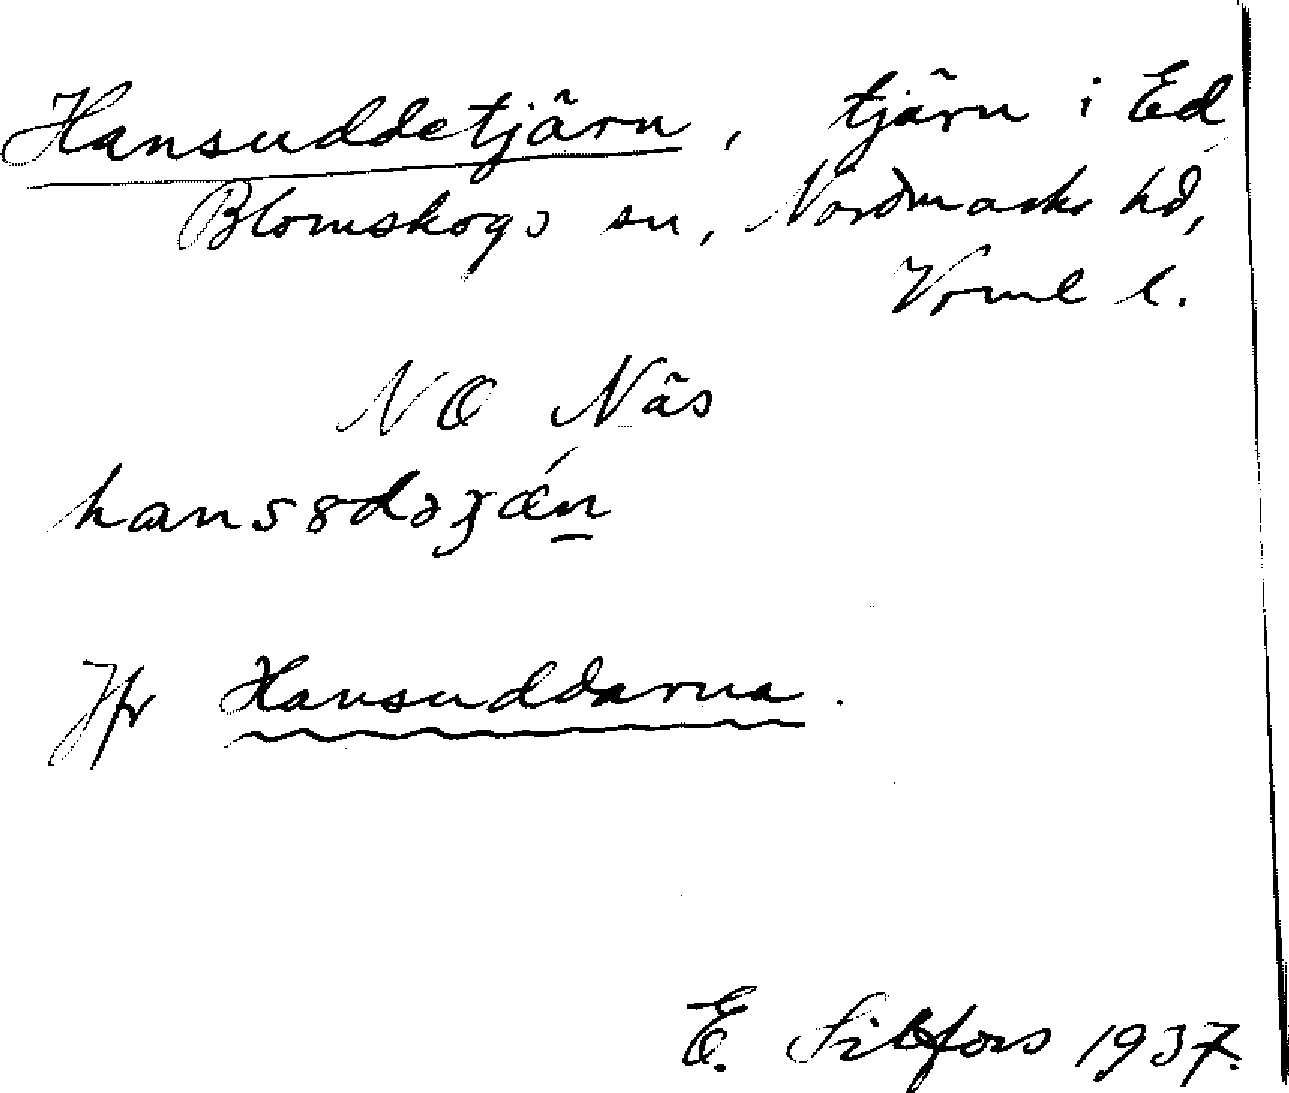 Hansuddetjärn, tjärn i Ed
Blomskogs sn, Nordmarks hd,
Vrml l.
NO Näs
Jfr Hansuddarna.
E. Sibfors 1937.